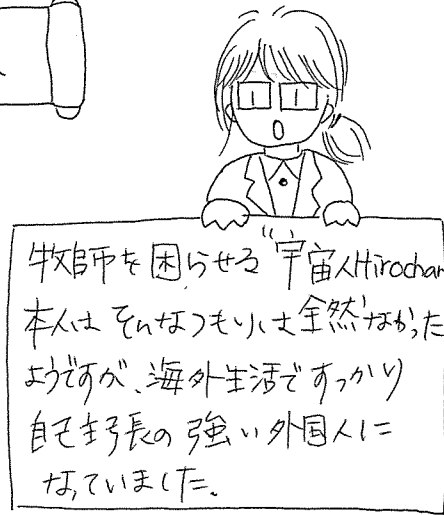 牧師を困らせる“宇宙人Hirochan
本人は そんなつもりは全然なかった
ようですが、海外生活ですっかり
自己主張の強い外国人に
なっていました。